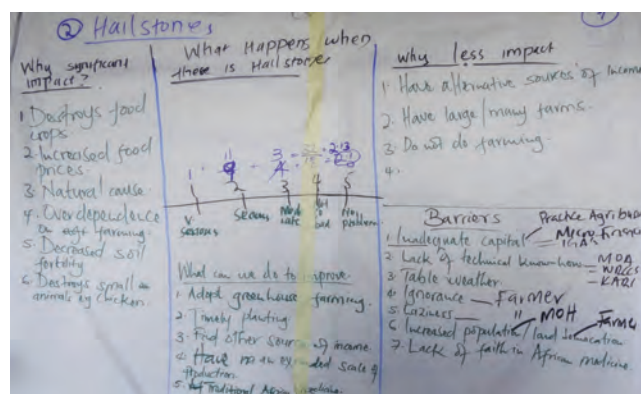 ② Hailstones
Why significant
impact?
1 Destroys food
crops
2. Increased food
prices.
3. Natural cause.
4. Overdependence
on farming.
5. Decreased soil
fertility
6. Destroys small
animals eg Chicken.
What Happens when
there is Hailstones
1 11 3
1 2 3 4 5
V. serious
Serious
Moderate
Not so bad
No problem
What can we do to improve.
1. Adopt greenhouse farming.
2. Timely planting
3. Find other source of income
4 Have an expanded scale of
Production.
5. Traditional African medicine.
why less impact
1. Have alternative sources of income
2. Have large/many farms.
3. Do not do farming.
4.
Barriers
Practice Agribus
1. Inadequate capital Micro-finance
2 Lack of technical know-how MOA
3. Table weather
KARI
4. Ignorance — Farmer
5. Laziness — "
6 Increased population/land MOH Farmer
7. Lack of faith in African medicine.